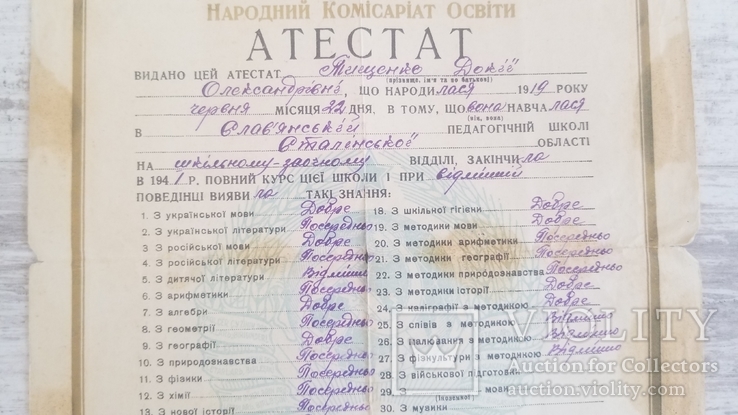 НАРОДНИЙ КОМІСАРІАТ ОСВІТИ
АТЕСТАТ
ВИДАНО ЦЕЙ АТЕСТАТ Тищенко Докії
(прізвище, ім'я та по батькові)
Олександрівні, ЩО НАРОДИлася 1919 РОКУ
червня МІСЯЦЯ 22 ДНЯ. В ТОМУ, ЩО вона НАВЧАлася
(він, вона)
В Слав'янській ПЕДАГОГІЧНІЙ ШКОЛІ
Сталінської ОБЛАСТІ
НА шкільному-заочному ВІДДІЛІ, ЗАКІНЧИла
В 1941 Р. ПОВНИЙ КУРС ЦІЄЇ ШКОЛИ І ПРИ відмінній
ПОВЕДІНЦІ ВИЯВИла ТАКІ ЗНАННЯ:
1. З української мови Добре
2. З української літератури Посередньо
3. З російської мови Добре
4. З російської літератури Посередньо
5. З дитячої літератури Відмінно
6. З арифметики Посередньо
7. З алгебри Добре
8. З геометрії Посередньо
9. З географії Добре
10. З природознавства Посередньо
11. З фізики Посередньо
12. З хімії Посередньо
13. З нової історії Добре
18. З шкільної гігієни Добре
19. З методики мови Добре
20. З методики арифметики Посередньо
21. З методики географії Посередньо
22. З методики природознавства Посередньо
23. З методики історії Добре
24. З каліграфії з методикою Добре
25. З співів з методикою Відмінно
26. З малювання з методикою Відмінно
27. З фізкультури з методикою Відмінно
28. З військової підготовки
29. З мови
30. З музики
VIOLITY
Auction for Collectors
auction.violity.com